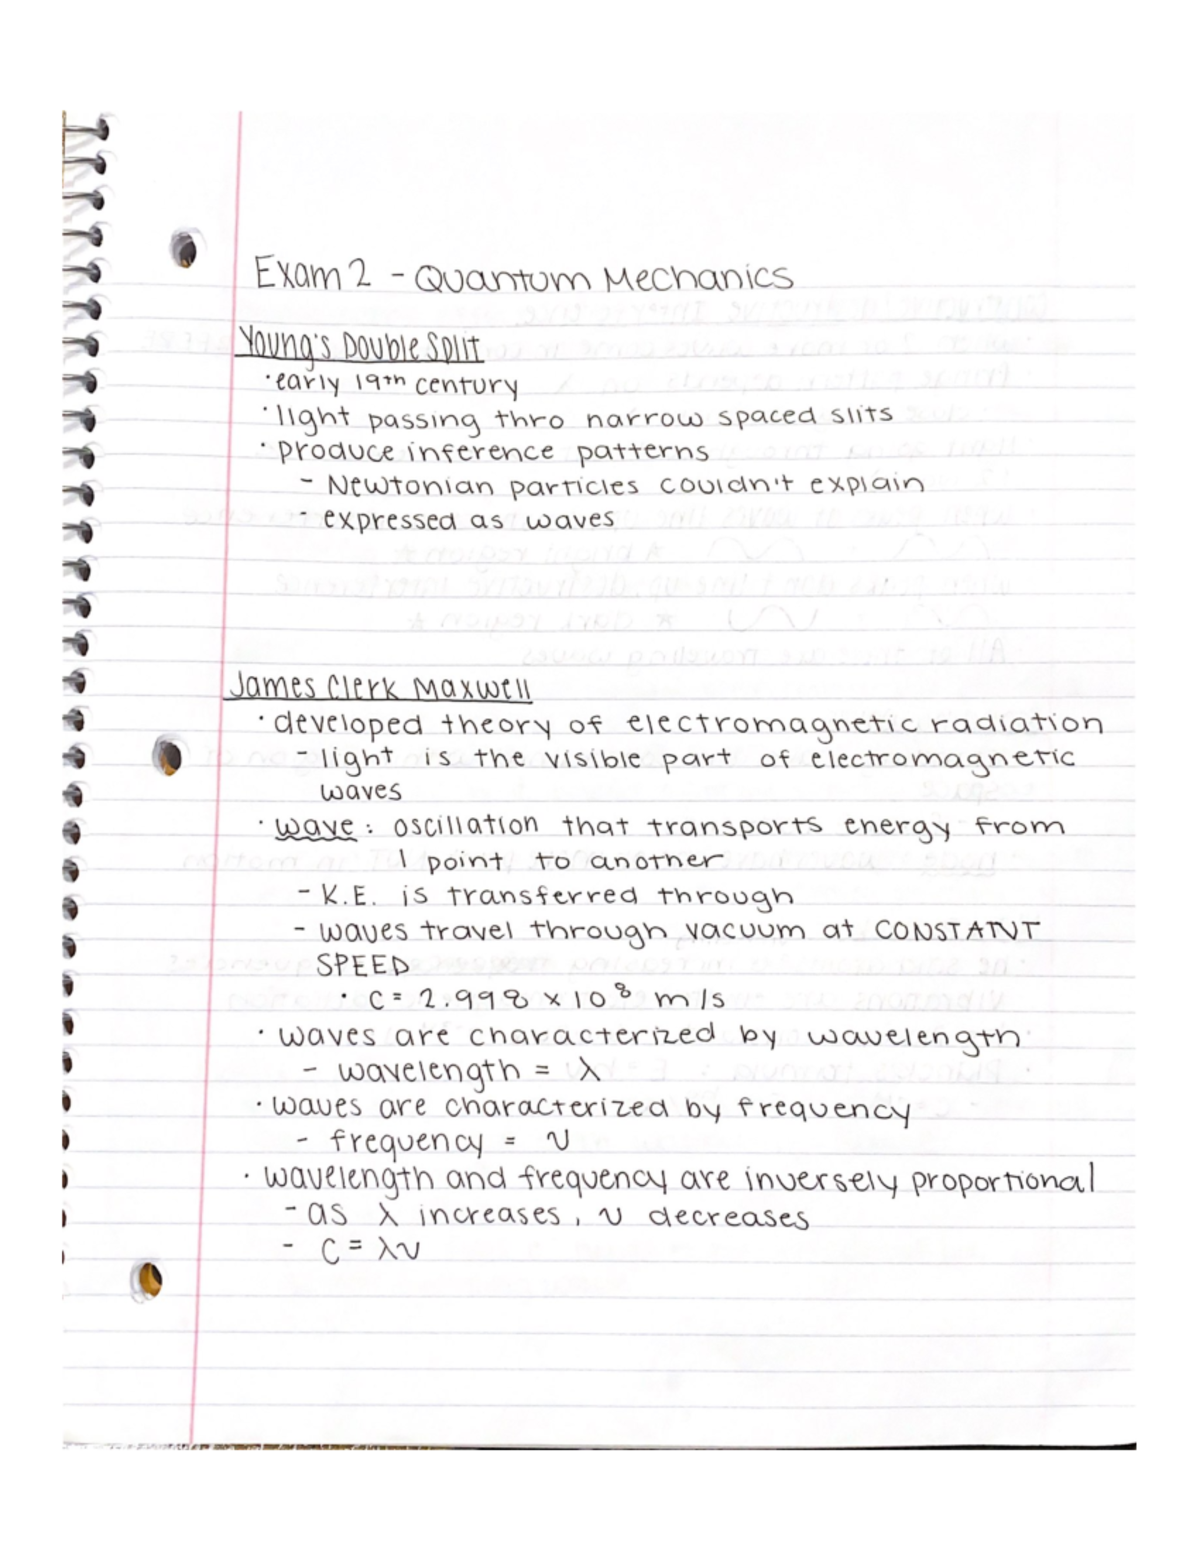 Exam 2 - Quantum Mechanics
Young's Double Split
· early 19th century
· light passing thro narrow spaced slits
· produce inference patterns
- Newtonian particles couldn't explain
- expressed as waves
James Clerk Maxwell
· developed theory of electromagnetic radiation
- light is the visible part of electromagnetic
waves
· wave: oscillation that transports energy from
1 point to another
- K.E. is transferred through
- waves travel through vacuum at CONSTATNT
SPEED
· C = 2.998 x 10⁸ m/s
· waves are characterized by wavelength
- wavelength = λ
· waves are characterized by frequency
- frequency = ν
· wavelength and frequency are inversely proportional
- as λ increases, ν decreases
- C = λν